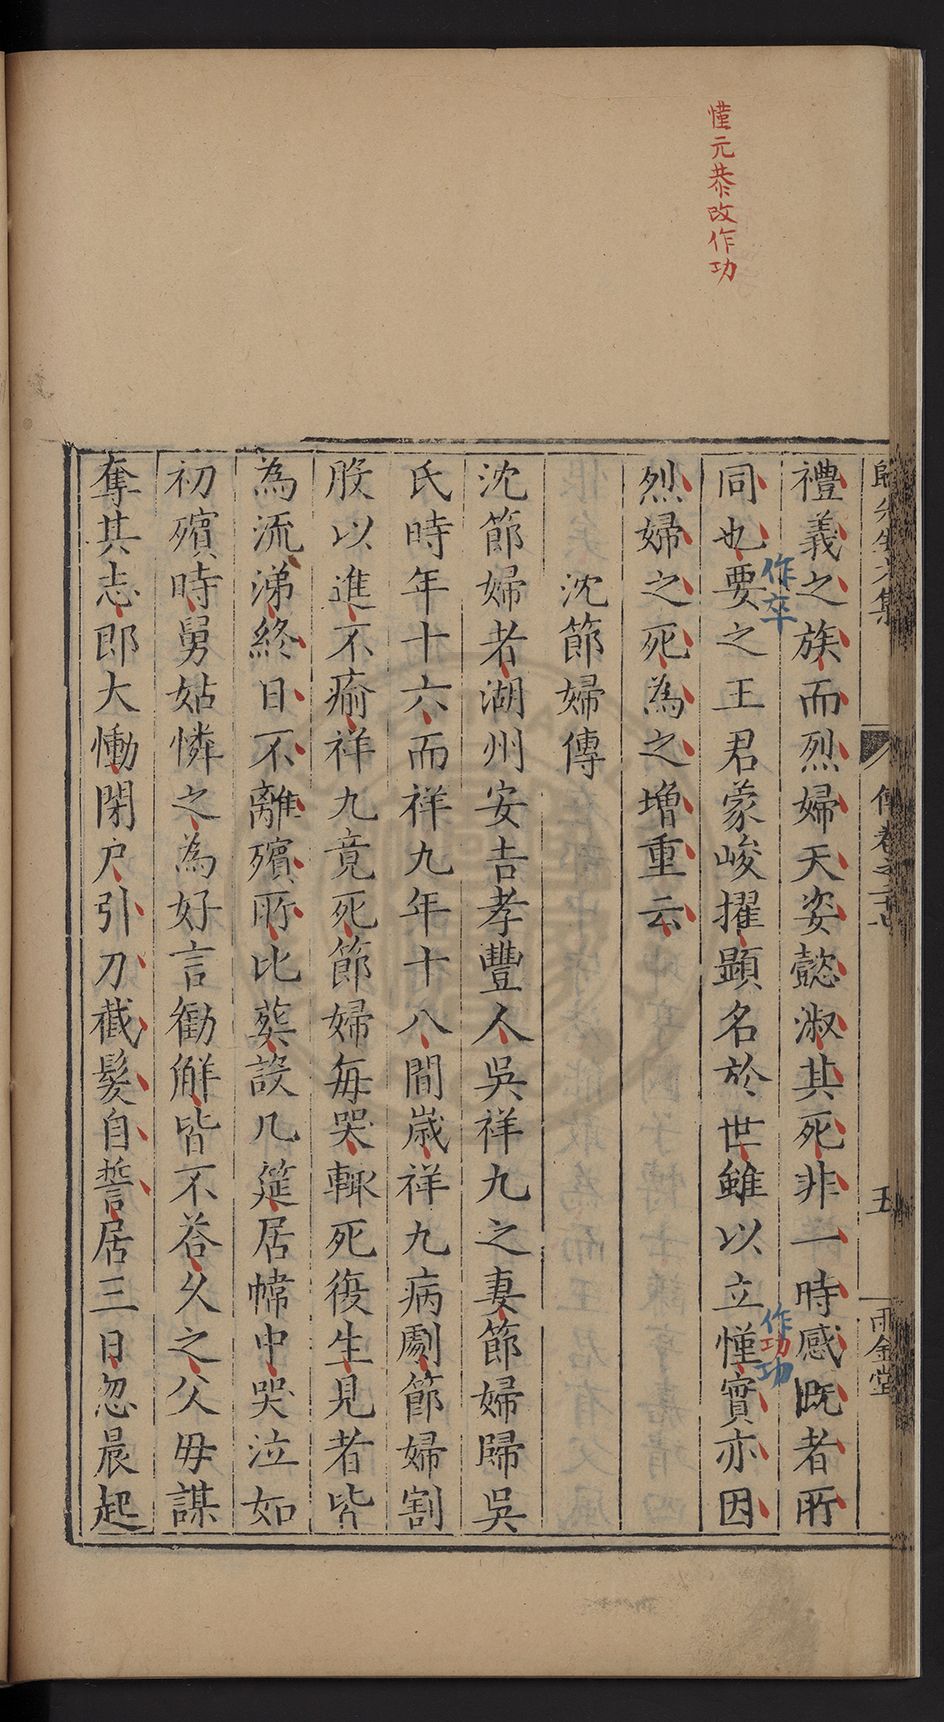 慬元恭改作功
禮義之族而烈婦天姿懿淑其死非一時感既者所
同也要之王君蒙峻擢顯名於世雖以立慬實亦因
作卒
作功功
烈婦之死為之增重云
沈節婦傳
沈節婦者湖州安吉孝豐人吳祥九之妻節婦歸吳
氏時年十六而祥九年十八間歲祥九病劇節婦割
股以進不瘉祥九竟死節婦每哭輒死復生見者皆
為流涕終日不離殯所比葬設几筵居幃中哭泣如
初殯時舅姑憐之為好言勸解皆不荅久之父毋謀
奪其志即大慟閉尺引刀截髮自誓居三日忽晨起
五
雨金堂